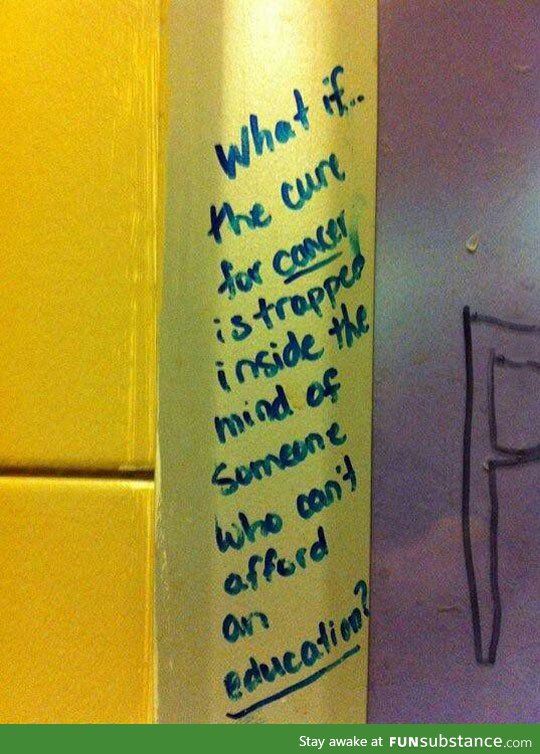 What if...
the cure
for cancer
is trapped
inside the
mind of
someone
who can't
afford
an
education?
Stay awake at FUNsubstance.com